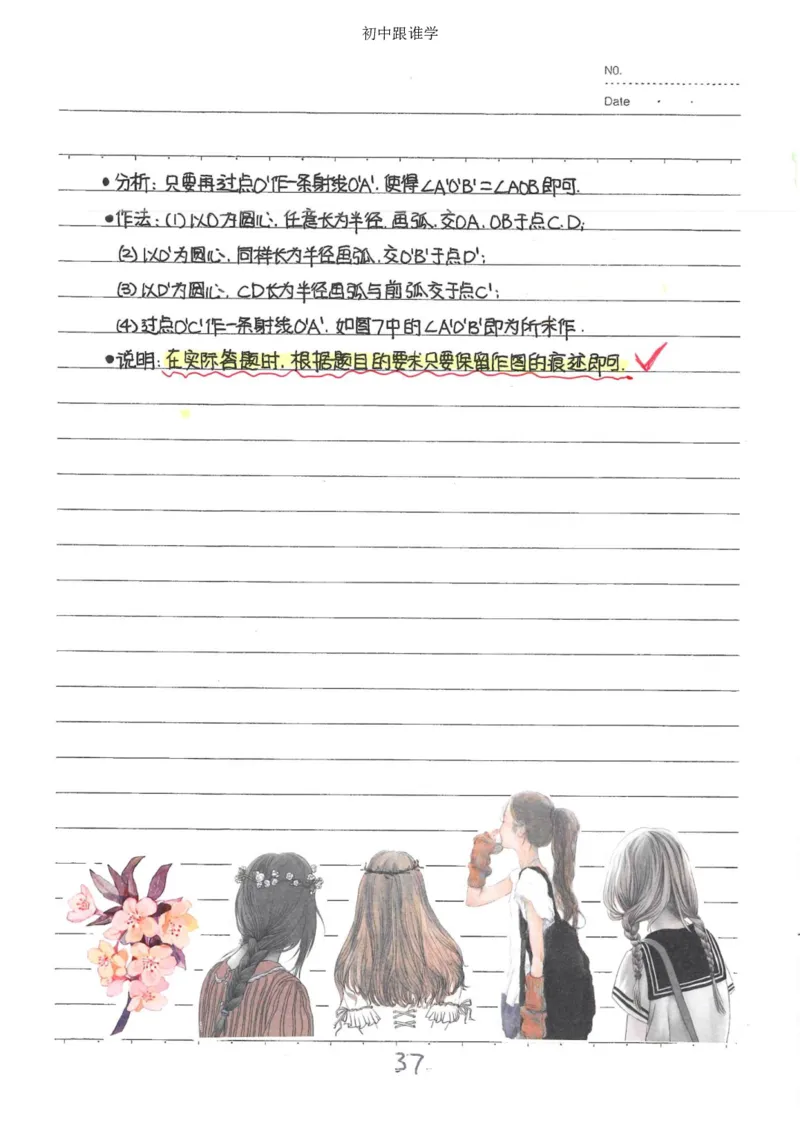 初中跟谁学
NO.
Date
•分析：只要再过点O'作一条射线O'A'，使得∠A'O'B'=∠AOB即可.
•作法：(1)以O为圆心，任意长为半径，画弧，交OA，OB于点C，D；
(2)以O'为圆心，同样长为半径画弧，交O'B'于点D'；
(3)以D'为圆心，CD长为半径画弧与前弧交于点C'；
(4)过点O'C'作一条射线O'A'，如图7中的∠A'O'B'即为所求作.
•说明：在实际答题时，根据题目的要求只要保留作图的痕迹即可.
37